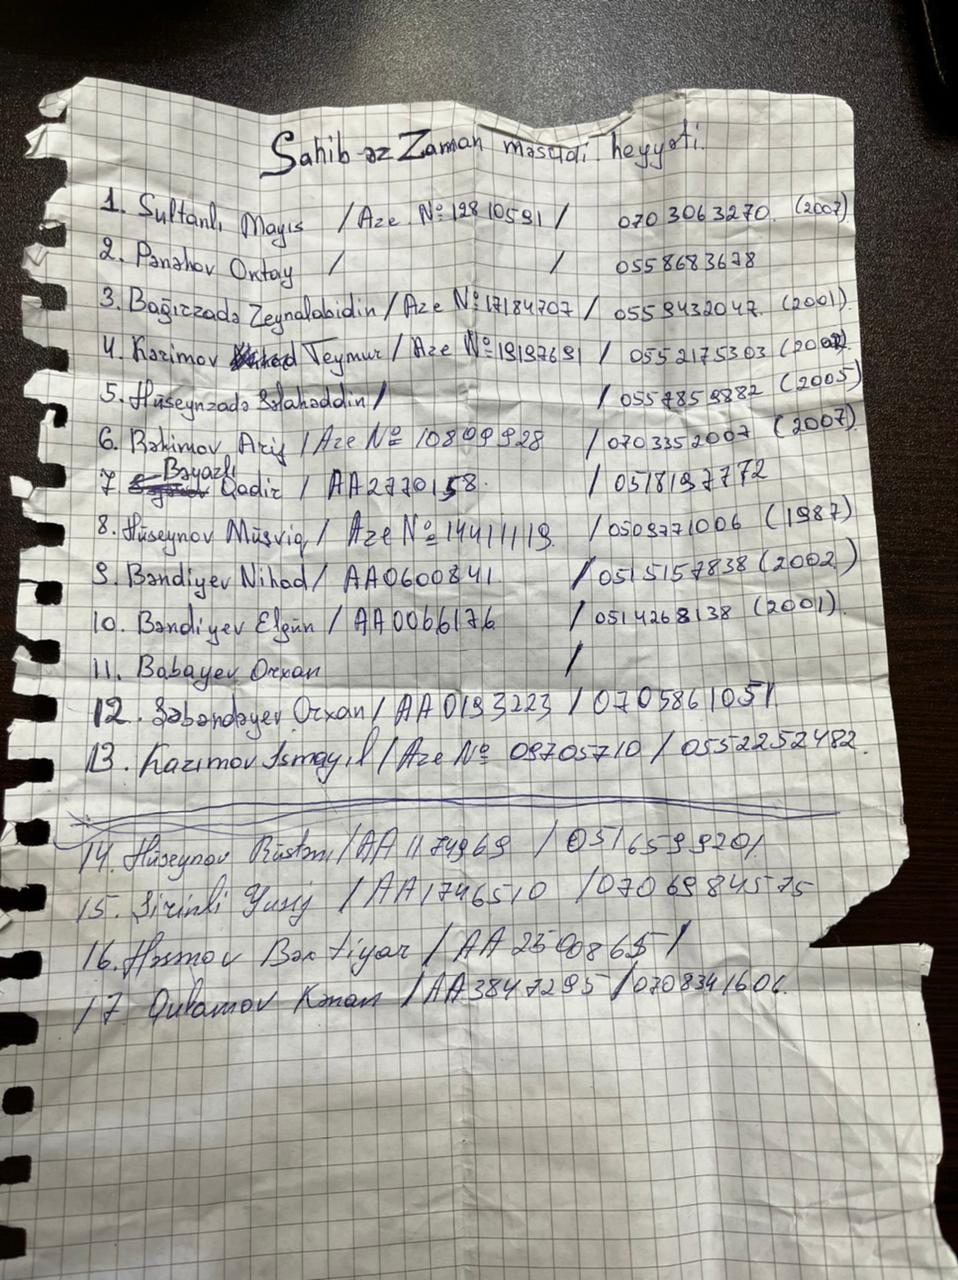 Sahib-əz Zaman məscidi heyyəti.
1. Sultanlı Mayıs / Aze № 12810591 / 070 3063270. (2007)
2. Pənahov Oktay / / 0558683678
3. Bağırzadə Zeynalabidin / Aze № 17184707 / 0559432047. (2001)
4. Kazımov Teymur / Aze № 19197691 / 0552175303
5. Hüseynzadə Səlahəddin / / 0557859882 (2005)
6. Rəhimov Arif / Aze № 10809928 / 0703352007 (2007)
7 Bəyazlı Qadir / AA2770158. / 0518197772
8. Hüseynov Müşviq / Aze № 14411119. / 0509771006 (1987)
9. Bəndiyev Nihad / AA0600841 / 0515157838 (2002)
10. Bəndiyev Elgün / AA0066176 / 0514268138 (2001)
11. Babayev Orxan /
12. Şəbəndəyev Orxan / AA0193223 / 0705861051
13. Kazımov İsmayıl / Aze № 09705710 / 0552252482.
14. Hüseynov Rüstəm / AA1174969 / 0516599201
15. Şirinli Yusif / AA1746510 / 0706984575
16. Bəxtiyar / AA /
17. Qulamov Kənan / AA3847295 / 0708341606.